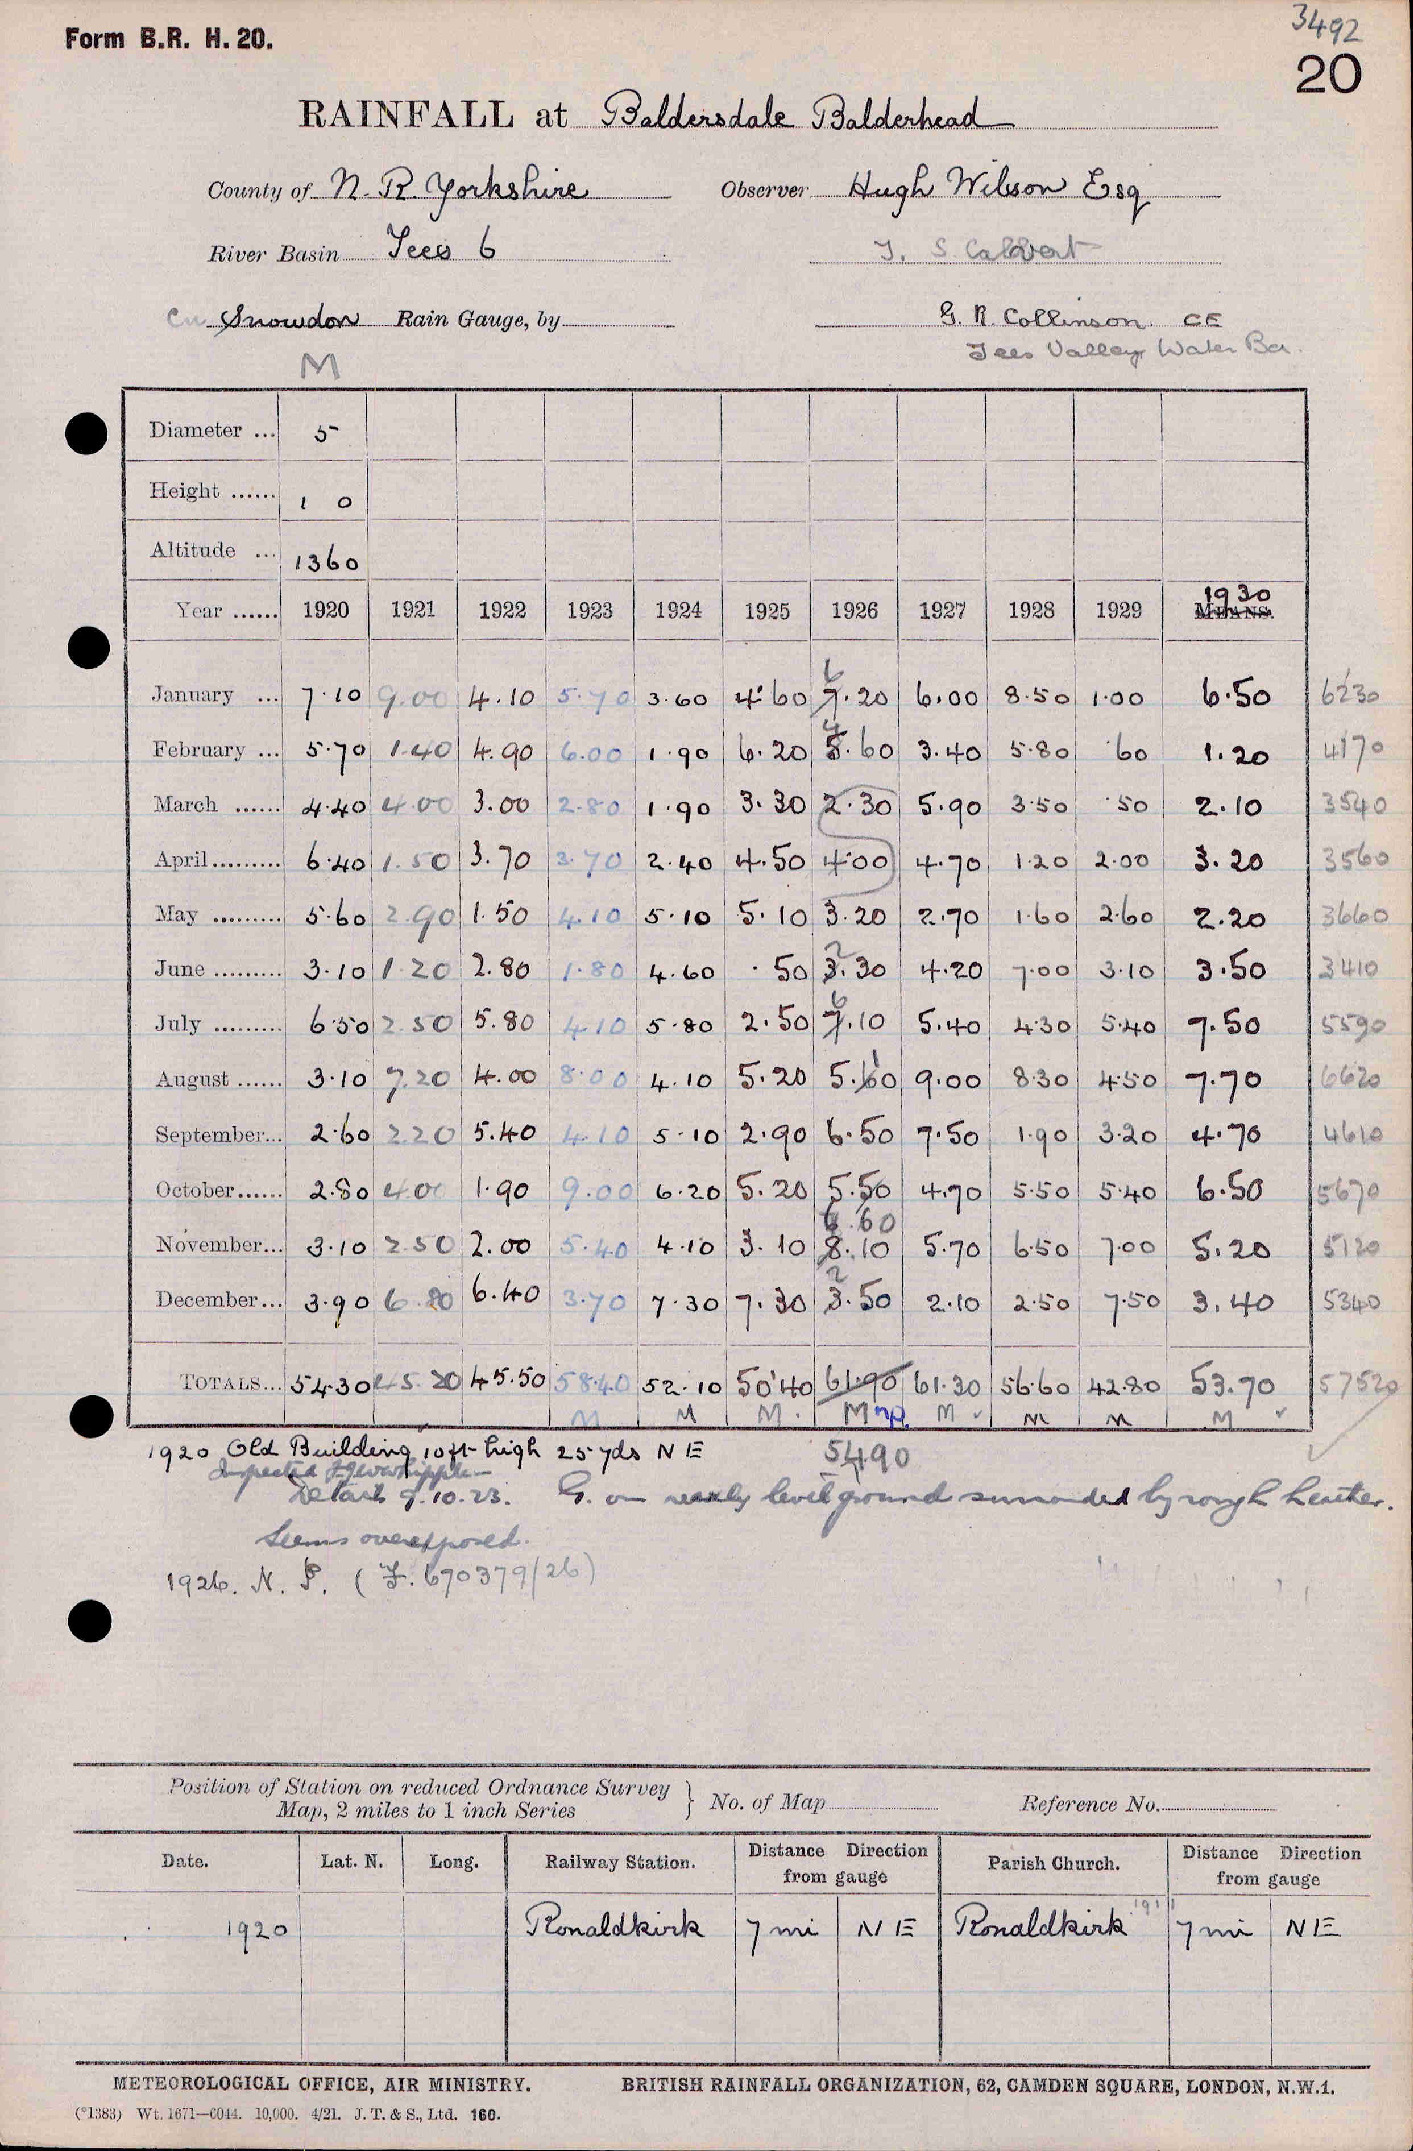 Form B.R. H. 20.
3492
20
RAINFALL at Baldersdale Balderhead
County of N. R. Yorkshire Observer Hugh Wilson Esq
River Basin Tees 6 T. S. Calvert
Snowdon Rain Gauge, by G. R. Collinson CE
M Tees Valley Water Bd.
Diameter ... 5
Height ...... 1 0
Altitude ... 1360
Year ...... 1920 1921 1922 1923 1924 1925 1926 1927 1928 1929 MEANS. 1930
January ... 7.10 9.00 4.10 5.70 3.60 4.60 7.20 6 6.00 8.50 1.00 6.50 6230
February ... 5.70 1.40 4.90 6.00 1.90 6.20 5.60 4 3.40 5.80 .60 1.20 4170
March ...... 4.40 4.00 3.00 2.80 1.90 3.30 2.30 5.90 3.50 .50 2.10 3540
April ......... 6.40 1.50 3.70 3.70 2.40 4.50 4.00 4.70 1.20 2.00 3.20 3560
May ......... 5.60 2.90 1.50 4.10 5.10 5.10 3.20 2.70 1.60 2.60 2.20 3660
June ......... 3.10 1.20 2.80 1.80 4.60 .50 3.30 2 4.20 7.00 3.10 3.50 3410
July ......... 6.50 2.50 5.80 4.10 5.80 2.50 7.10 6 5.40 4.30 5.40 7.50 5590
August ...... 3.10 7.20 4.00 8.00 4.10 5.20 5.60 1 9.00 8.30 4.50 7.70 6620
September... 2.60 2.20 5.40 4.10 5.10 2.90 6.50 7.50 1.90 3.20 4.70 4610
October...... 2.80 4.00 1.90 9.00 6.20 5.20 5.50 4.70 5.50 5.40 6.50 5670
November... 3.10 2.50 2.00 5.40 4.10 3.10 8.10 6.60 5.70 6.50 7.00 5.20 5120
December... 3.90 6.80 6.40 3.70 7.30 7.30 3.50 2 2.10 2.50 7.50 3.40 5340
TOTALS... 54.30 45.20 45.50 58.40 52.10 50.40 61.90 61.30 56.60 42.80 53.70 57520
M M M M np. M M M M
1920 Old Building 10ft high 25 yds N E 5490
Inspected F.J.W. Whipple
Details 9.10.23. G. on nearly level ground surrounded by rough heather.
Seems overexposed.
1926. N. P. (F. 670379/26)
Position of Station on reduced Ordnance Survey Map, 2 miles to 1 inch Series } No. of Map Reference No.
Date. Lat. N. Long. Railway Station. Distance Direction from gauge Parish Church. Distance Direction from gauge
1920 Romaldkirk 7 mi N E Romaldkirk 1911 7 mi N E
METEOROLOGICAL OFFICE, AIR MINISTRY. BRITISH RAINFALL ORGANIZATION, 62, CAMDEN SQUARE, LONDON, N.W.1.
(*1383) Wt. 1671—6044. 10,000. 4/21. J. T. & S., Ltd. 160.